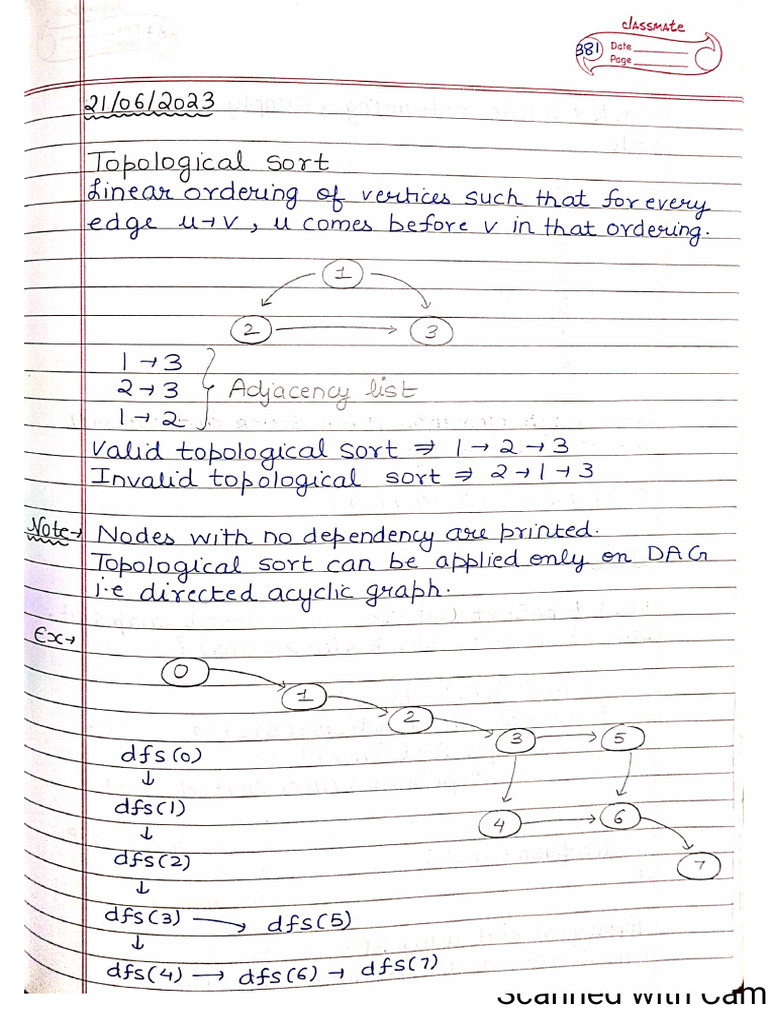 classmate
381
Date
Page
21/06/2023
Topological sort
Linear ordering of vertices such that for every
edge u→v, u comes before v in that ordering.
1
2 3
1→3
2→3
1→2
Adjacency list
Valid topological sort ⇒ 1→2→3
Invalid topological sort ⇒ 2→1→3
Note→ Nodes with no dependency are printed.
Topological sort can be applied only on DAG
i.e directed acyclic graph.
Ex→
0
1
2
3 5
4 6
7
dfs(0)
↓
dfs(1)
↓
dfs(2)
↓
dfs(3) → dfs(5)
↓
dfs(4) → dfs(6) → dfs(7)
Scanned with Cam